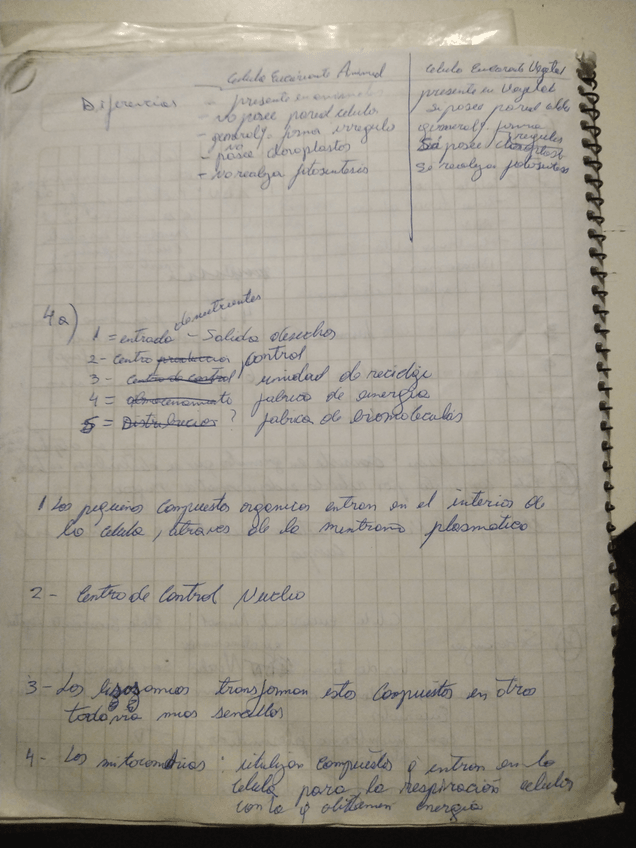 Diferencias
Celula Eucarionte Animal
- presente en animales
- no posee pared celular
- general/ forma irregular
- no posee cloroplastos
- no realiza fotosintesis
Celula Eucarionte Vegetal
presente en Vegetal
Si posee pared
general/ forma regular
Si posee cloroplasto
Si realiza fotosintesis
4a) 1 = entrada de nutrientes - Salida desechos
2 - Centro produccion control
3 - Centro de control unidad de reciclaje
4 = almacenamiento fabrica de energia
5 = Distribucion ? fabrica de biomoleculas
1 Los pequeños compuestos organicos entran en el interior de
la celula, atraves de la menbrana plasmatica
2 - Centro de Control Nucleo
3 - Los lisosomas transforman estos compuestos en otros
todavia mas sencillos
4 - Las mitocondrias : utilizan compuestos q entran en la
celula para la respiración celular
con la q obtienen energia